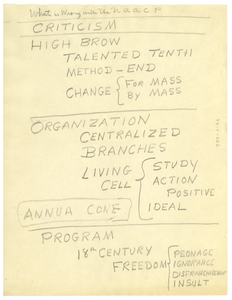 What is Wrong with the NAACP
CRITICISM
HIGH BROW
TALENTED TENTH
METHOD – END
CHANGE { FOR MASS
BY MASS
ORGANIZATION
CENTRALIZED
BRANCHES
LIVING CELL { STUDY
ACTION
POSITIVE
IDEAL
ANNUA CONF
PROGRAM
18th CENTURY
FREEDOM { PEONAGE
IGNORANCE
DISFRANCHISEMENT
INSULT